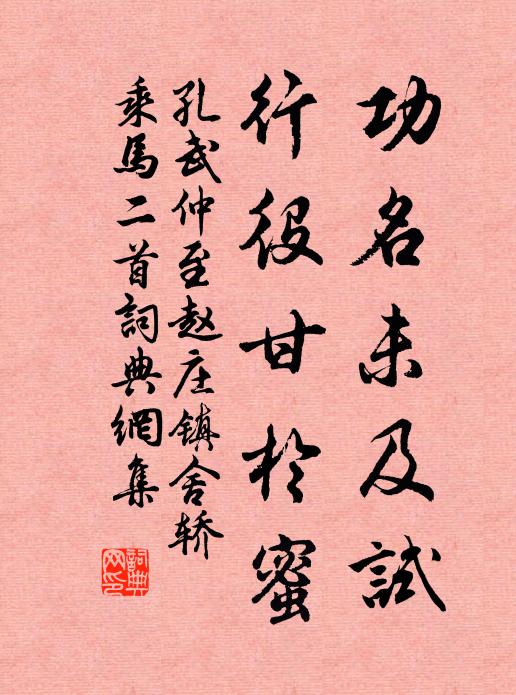 功名未及試
行役甘於蜜
孔武仲至赵庄镇舍轿
乘馬二首詞典網集
詞典
网印